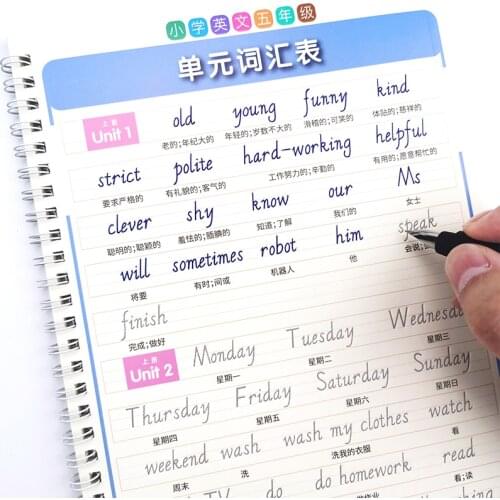 小学英文五年级
单元词汇表
上册 Unit 1 old young funny kind
老的;年纪大的 年轻的;岁数不大的 滑稽的;可笑的 体贴的;慈祥的
strict polite hard-working helpful
要求严格的 有礼貌的;客气的 工作努力的;辛勤的 有用的;愿意帮忙的
clever shy know our Ms
聪明的;聪颖的 羞怯的;腼腆的 知道;了解 我们的 女士
will sometimes robot him speak
将要 有时;间或 机器人 他 会说;
finish
完成;做好
上册 Unit 2 Monday Tuesday Wednesday
星期一 星期二 星期三
Thursday Friday Saturday Sunday
星期四 星期五 星期六 星期日
weekend wash wash my clothes watch
周末 洗 洗我的衣服 看
do do homework read
看